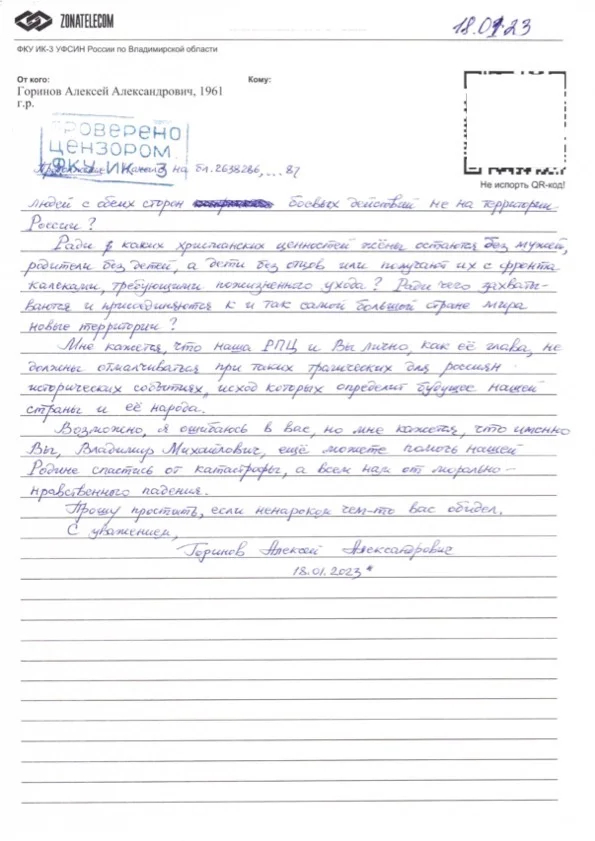 ZONATELECOM
18.01.23
ФКУ ИК-3 УФСИН России по Владимирской области
От кого:
Кому:
Горинов Алексей Александрович, 1961
г.р.
ПРОВЕРЕНО
ЦЕНЗОРОМ
ФКУ ИК 3
Не испорть QR-код!
на бл.2638286,...87
людей с обеих сторон боевых действий не на территории
России?
Ради каких христианских ценностей жёны остаются без мужей,
родители без детей, а дети без отцов или получают их с фронта
калеками, требующими пожизненного ухода? Ради чего захваты-
ваются и присоединяются к и так самой большой стране мира
новые территории?
Мне кажется, что наша РПЦ и Вы лично, как её глава, не
должны отмалчиваться при таких трагических для россиян
исторических событиях, исход которых определит будущее нашей
страны и её народа.
Возможно, я ошибаюсь в вас, но мне кажется, что именно
Вы, Владимир Михайлович, ещё можете помочь нашей
Родине спастись от катастрофы, а всем нам от морально-
нравственного падения.
Прошу простить, если ненароком чем-то вас обидел.
С уважением,
Горинов Алексей Александрович
18.01.2023